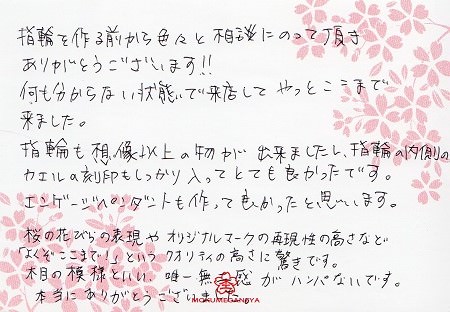 指輪を作る前から色々と相談にのって頂き
ありがとうございます!!
何も分からない状態で来店して やっとここまで
来ました。
指輪も想像以上の物が出来ましたし、指輪の内側の
カエルの刻印もしっかり入ってとても良かったです。
エンゲージペンダントも作って良かったと思います。
桜の花びらの表現やオリジナルマークの再現性の高さなど
「よくぞここまで!」というクオリティの高さに驚きです。
木目の模様といい、唯一無二感がハンパないです。
本当にありがとうございました。
MOKUMEGANEYA